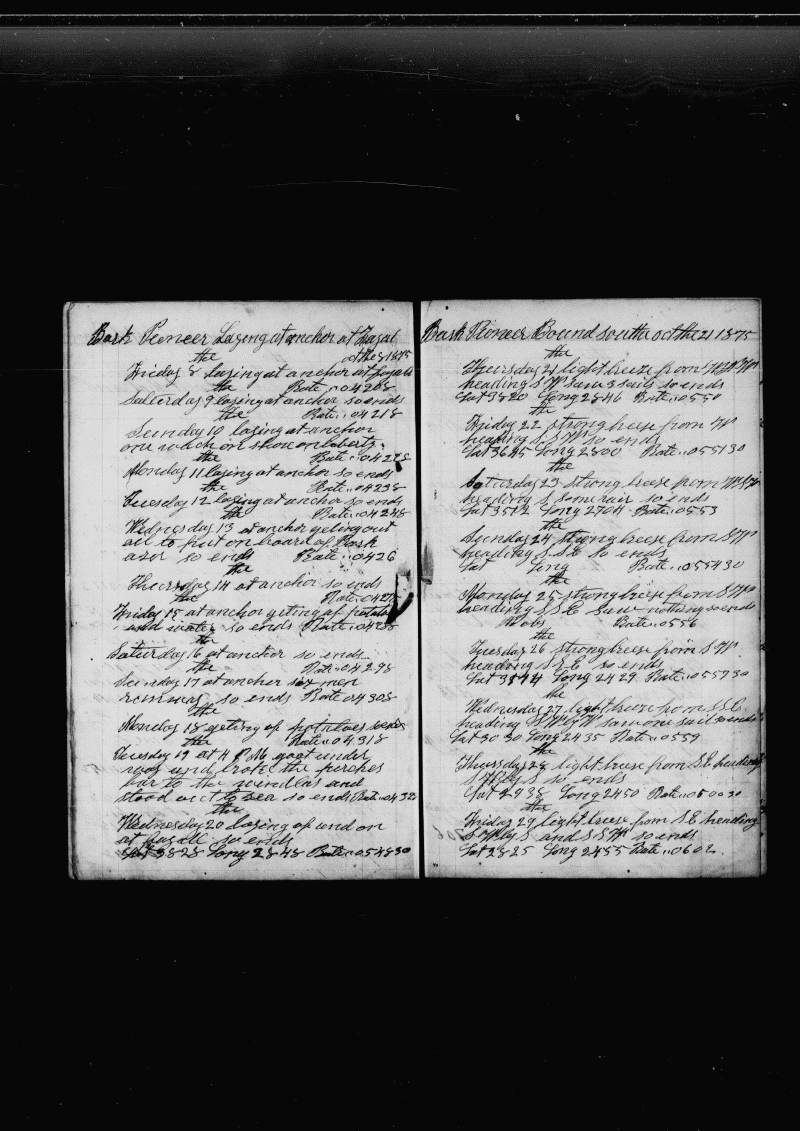 Bark Pioneer Laying at anchor at Fayal
oct the 8 1875
the
Friday 8 laying at anchor at fayall
the Rate..04208
Saturday 9 laying at anchor so ends
the Rate..04218
Sunday 10 laying at anchor
one watch on shore on liberty
the Rate..04228
Monday 11 laying at anchor so ends
the Rate..04238
Tuesday 12 laying at anchor so ends
the Rate..04248
Wednesday 13 at anchor geting out
oil to put on board of Bark
so ends Rate..0426
the
Thursday 14 at anchor so ends
the Rate..
Friday 15 at anchor geting of potatoes
and water so ends Rate..
the
Saturday 16 at anchor so ends
the Rate..04298
Sunday 17 at anchor six men
runaway so ends Rate 04308
the
Monday 18 geting of potatoes
the Rate..04318
Tuesday 19 at 4 P M goet under
way and broke the perches
bar to the windlas and
stood out to sea so ends Rate..0432
the
Wednesday 20 laying of and on
at fayall so ends
Lat 3828 Long 2848 Rate..054830
Bark Pioneer Bound south oct the 21 1875
the
Thursday 21 light breeze from WNW
heading S W saw 3 sails so ends
Lat 3820 Long 2846 Rate..0550
the
Friday 22 strong breeze from W
heading S S W so ends
Lat 3645 Long 2800 Rate..055130
the
Saturday 23 strong breeze from
heading S some rain so ends
Lat 3512 Long 2704 Rate..0553
the
Sunday 24 strong breeze from S W
heading S.S.E so ends
Lat Long Rate..055430
the
Monday 25 strong breeze from S W
heading S S E saw nothing so ends
No obs Rate..0556
the
Tuesday 26 strong breeze from S W
heading S S E so ends
Lat Long 2429 Rate..055730
the
Wednesday 27 light breeze from S S E
heading S W by W saw one sail so ends
Lat 3030 Long 2435 Rate..0559
the
Thursday 28 light breeze from S E heading
S W by S so ends
Lat 2938 Long 2450 Rate..050030
the
Friday 29 light breeze from S E heading
by S and S S W so ends
Lat 2825 Long 2455 Rate..0602